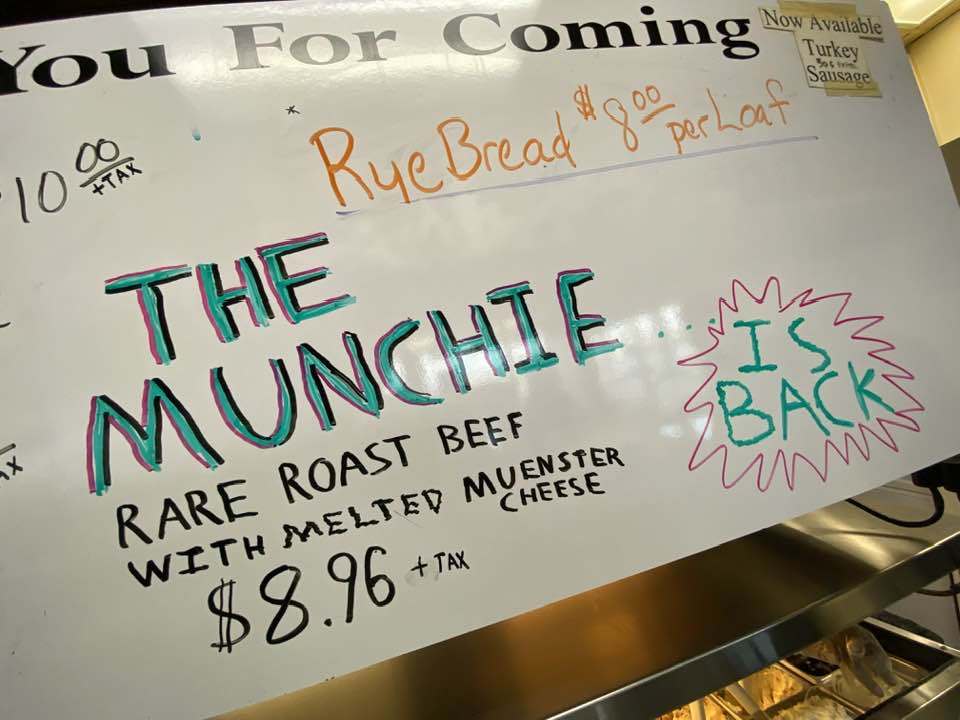 You For Coming
Now Available
Turkey
Sausage
$10.00
+TAX
*
Rye Bread $8.00 per Loaf
THE
MUNCHIE ...
IS
BACK
RARE ROAST BEEF
WITH MELTED MUENSTER
CHEESE
$8.96 + TAX